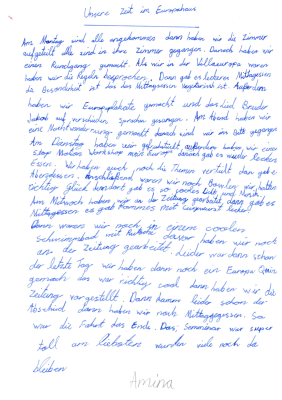 Unsere Zeit im Europahaus
Am Montag sind alle angekommen dann haben wir die Zimmer
aufgeteilt alle sind in ihre Zimmer gegangen. Danach haben wir
einen Rundgang gemacht. Als wir in der Villa europa waren
haben wir die Regeln besprochen. Dann gab es leckeres Mittagessen
die Besonderheit ist das das Mittagessen vegetarisch ist. Außerdem
haben wir Europa gemacht und das Lied Bruder
Jakob auf verschieden Sprachen gesungen. Am Abend haben wir
eine Nachtwanderung gemacht danach sind wir im Bett gegangen
Am Dienstag haben wir gefrühstückt außerdem haben wir einen
Stop Motion Workshop mein Europa danach gab es wieder leckeres
Essen. Wir haben auch noch die Tiernamen verteilt dann gabs
Abendessen. Anschließend waren wir noch Bowlen wir hatten
richtig Glück den dort gab es so cooles Licht und Musik.
Am Mittwoch haben wir an der Zeitung gearbeitet dann gab es
Mittagessen es gab Pommes mit Currywurst lecker!
Dann waren wir noch in einem coolen
Schwimmbad mit Rutsche davor haben wir noch
an der Zeitung gearbeitet. Leider war dann schon
der letzte Tag wir haben dann noch ein Europa Quiz
gemacht das war richtig cool dann haben wir die
Zeitung vorgestellt. Dann kamm leider schon der
Abschied dann haben wir noch Mittaggegessen. So
war die Fahrt das Ende. Das Semminar war super
toll am liebsten würden viele noch da
bleiben
Amina